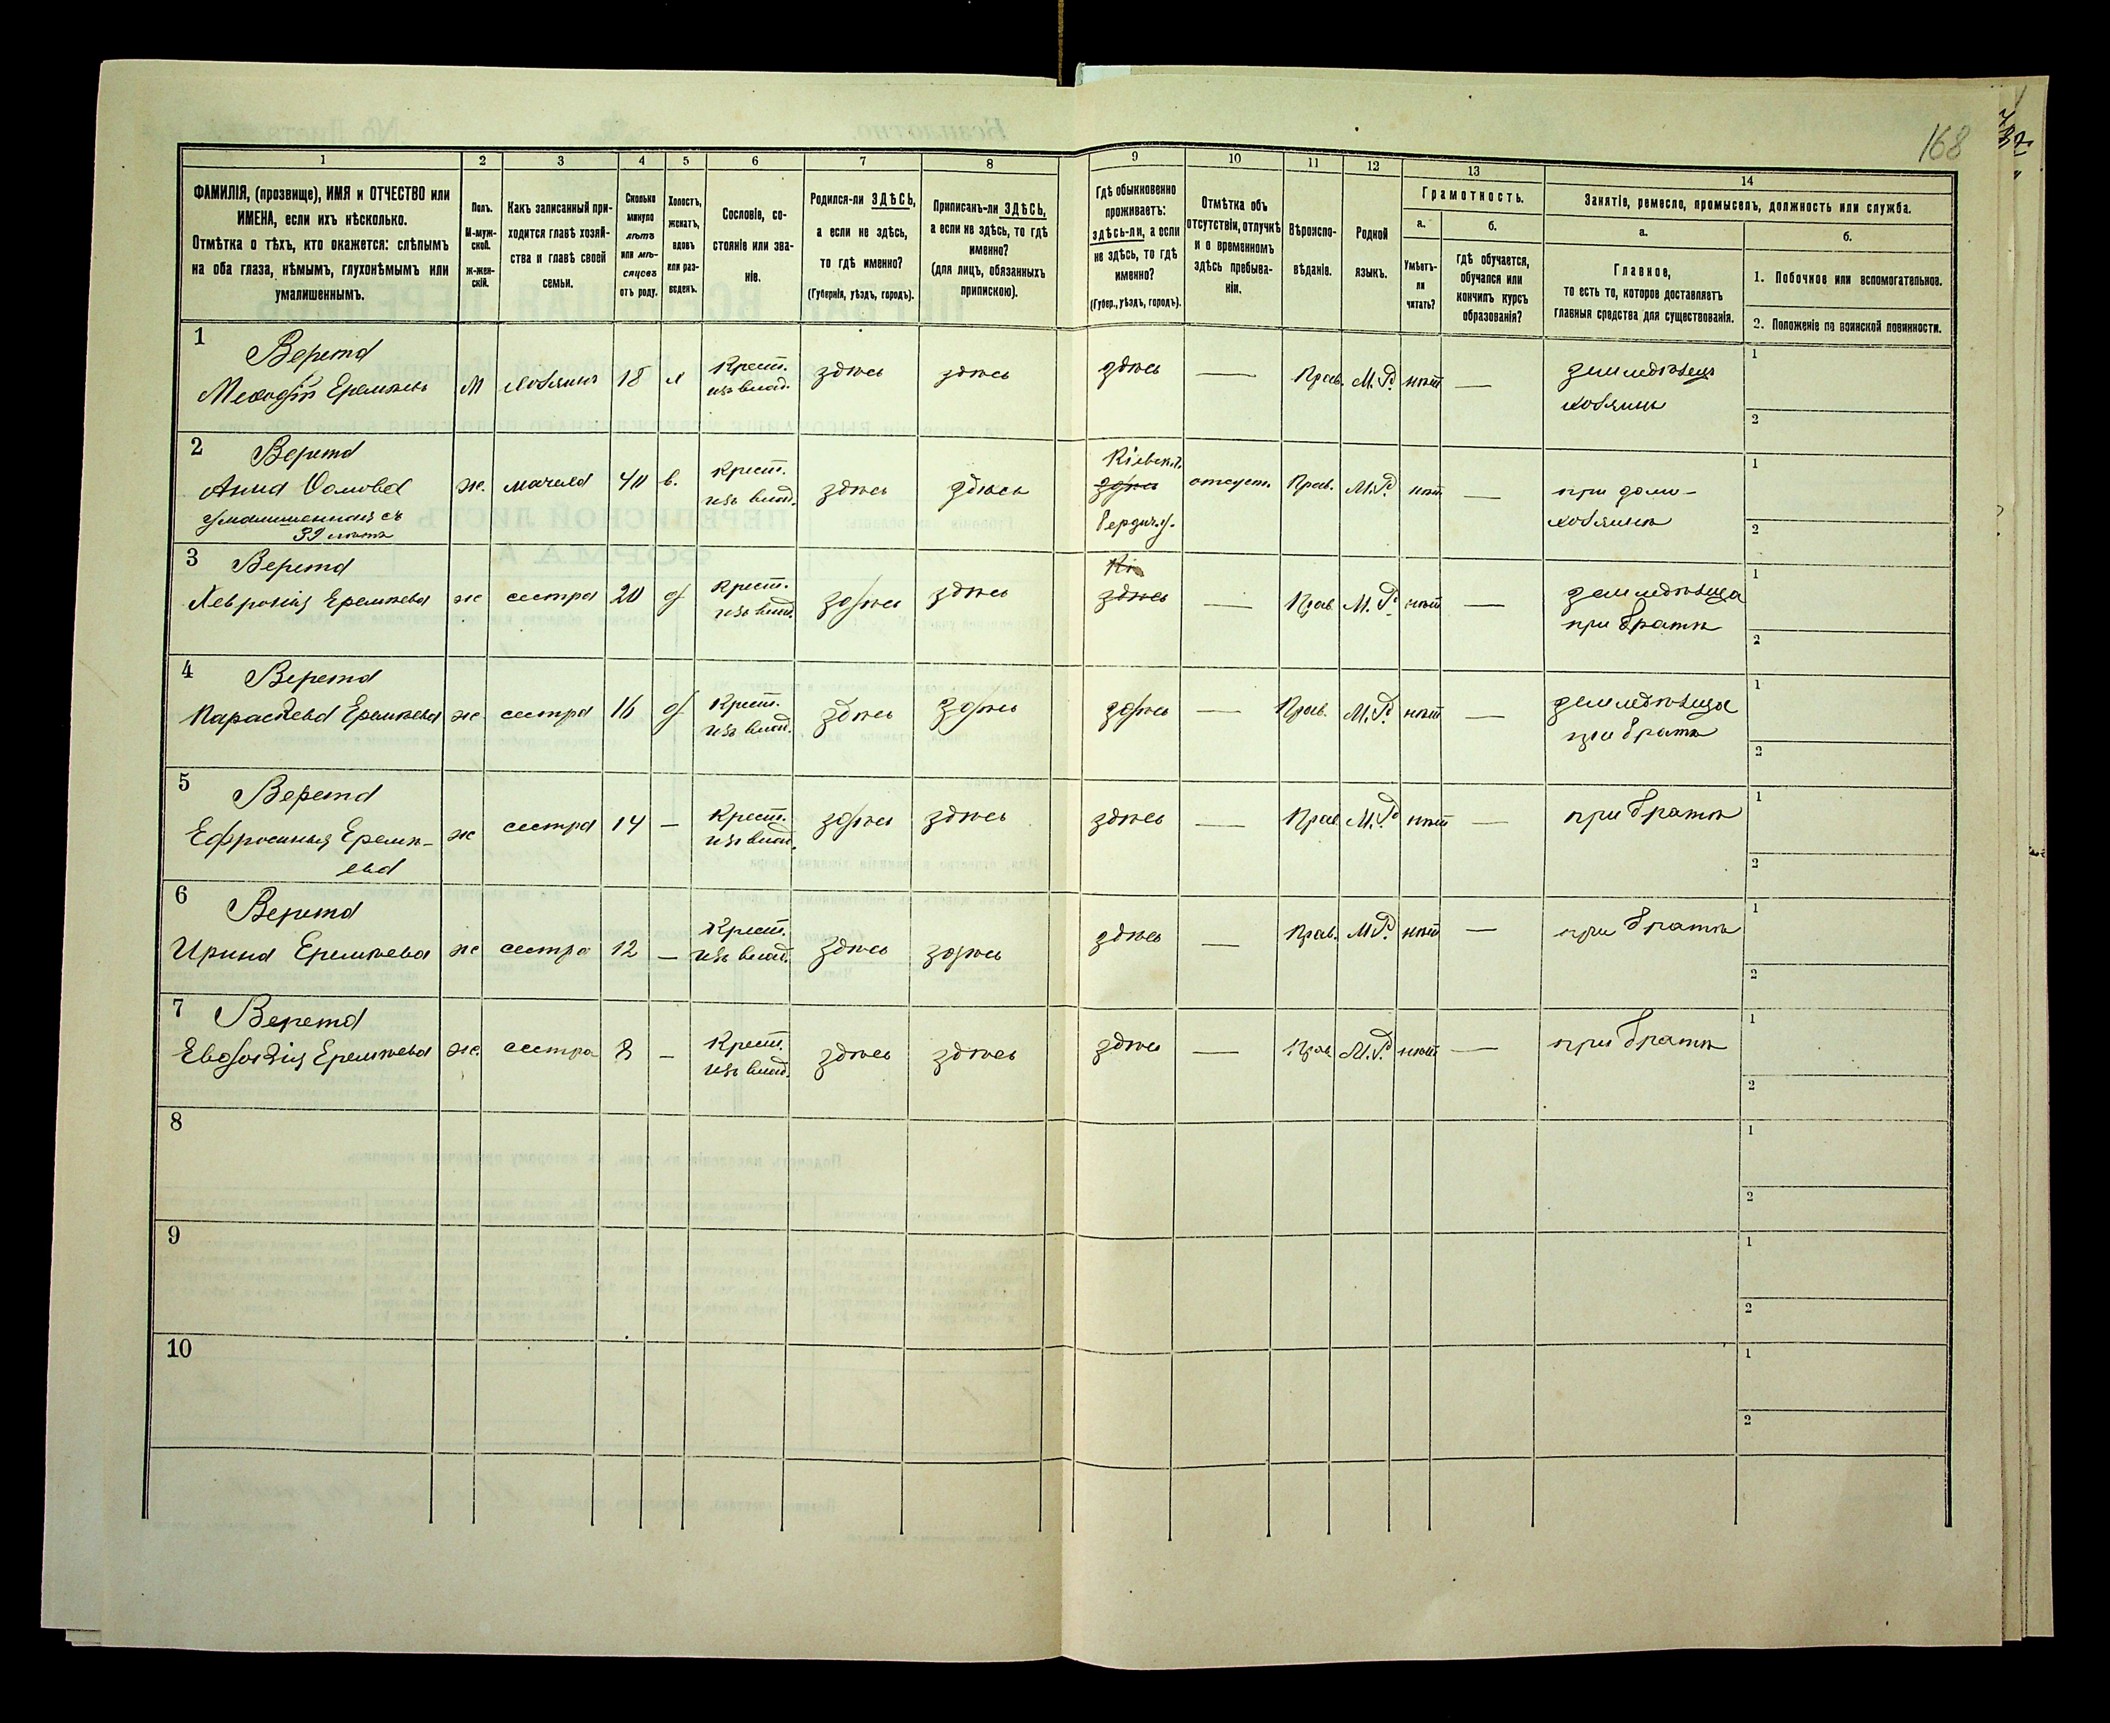 168
1 2 3 4 5 6 7 8 9 10 11 12 13 14
ФАМИЛІЯ, (прозвище), ИМЯ и ОТЧЕСТВО или
ИМЕНА, если ихъ нѣсколько.
Отмѣтка о тѣхъ, кто окажется: слѣпымъ
на оба глаза, нѣмымъ, глухонѣмымъ или
умалишеннымъ.
Полъ.
М-муж-
ской.
ж-жен-
скій.
Какъ записанный при-
ходится главѣ хозяй-
ства и главѣ своей
семьи.
Сколько
минуло
лѣтъ
или мѣ-
сяцевъ
отъ роду.
Холостъ,
женатъ,
вдовъ
или раз-
веденъ.
Сословіе, со-
стояніе или зва-
ніе.
Родился-ли ЗДѢСЬ,
а если не здѣсь,
то гдѣ именно?
(Губернія, уѣздъ, городъ).
Приписанъ-ли ЗДѢСЬ,
а если не здѣсь, то гдѣ
именно?
(для лицъ, обязанныхъ
припискою).
Гдѣ обыкновенно
проживаетъ:
здѣсь-ли, а если
не здѣсь, то гдѣ
именно?
(Губер., уѣздъ, городъ).
Отмѣтка объ
отсутствіи, отлучкѣ
и о временномъ
здѣсь пребыва-
ніи.
Вѣроиспо-
вѣданіе.
Родной
языкъ.
Грамотность.
а.
Умѣетъ-
ли
читать?
б.
гдѣ обучается,
обучался или
кончилъ курсъ
образованія?
Занятіе, ремесло, промыселъ, должность или служба.
а.
Главное,
то есть то, которое доставляетъ
главныя средства для существованія.
б.
1. Побочное или вспомогательное.
2. Положеніе по воинской повинности.
1
Верета
Меѳодій Еремѣевъ
М
хозяинъ
18
х
Крест.
изъ влад.
здѣсь
здѣсь
здѣсь
—
Прав.
М. Р.
нѣт
—
земледѣлецъ
хозяинъ
1
2
2
Верета
Анна
умалишенная съ
39 лѣтъ
ж.
мачеха
40
в.
Крест.
изъ влад.
здѣсь
здѣсь
Кіевск. г.
здѣсь
Бердич. у.
отсутст.
Прав.
М. Р.
нѣт
—
при домо-
хозяинѣ
1
2
3
Верета
Хевронія Еремѣева
ж
сестра
20
д
Крест.
изъ влад.
здѣсь
здѣсь
Кі
здѣсь
—
Прав
М. Р.
нѣт
—
земледѣлица
при братѣ
1
2
4
Верета
Параскева Еремѣева
ж
сестра
16
д
Крест.
изъ влад.
здѣсь
здѣсь
здѣсь
—
Прав.
М. Р.
нѣт
—
земледѣлица
при братѣ
1
2
5
Верета
Ефросинья Еремѣ-
ева
ж
сестра
14
—
Крест.
изъ влад.
здѣсь
здѣсь
здѣсь
—
Прав
М. Р.
нѣт
—
при братѣ
1
2
6
Верета
Ирина Еремѣева
ж
сестра
12
—
Крест.
изъ влад.
здѣсь
здѣсь
здѣсь
—
Прав.
М. Р.
нѣт
—
при братѣ
1
2
7
Верета
Евдокія Еремѣева
ж.
сестра
8
—
Крест.
изъ влад.
здѣсь
здѣсь
здѣсь
—
Прав
М. Р.
нѣт
—
при братѣ
1
2
8
1
2
9
1
2
10
1
2